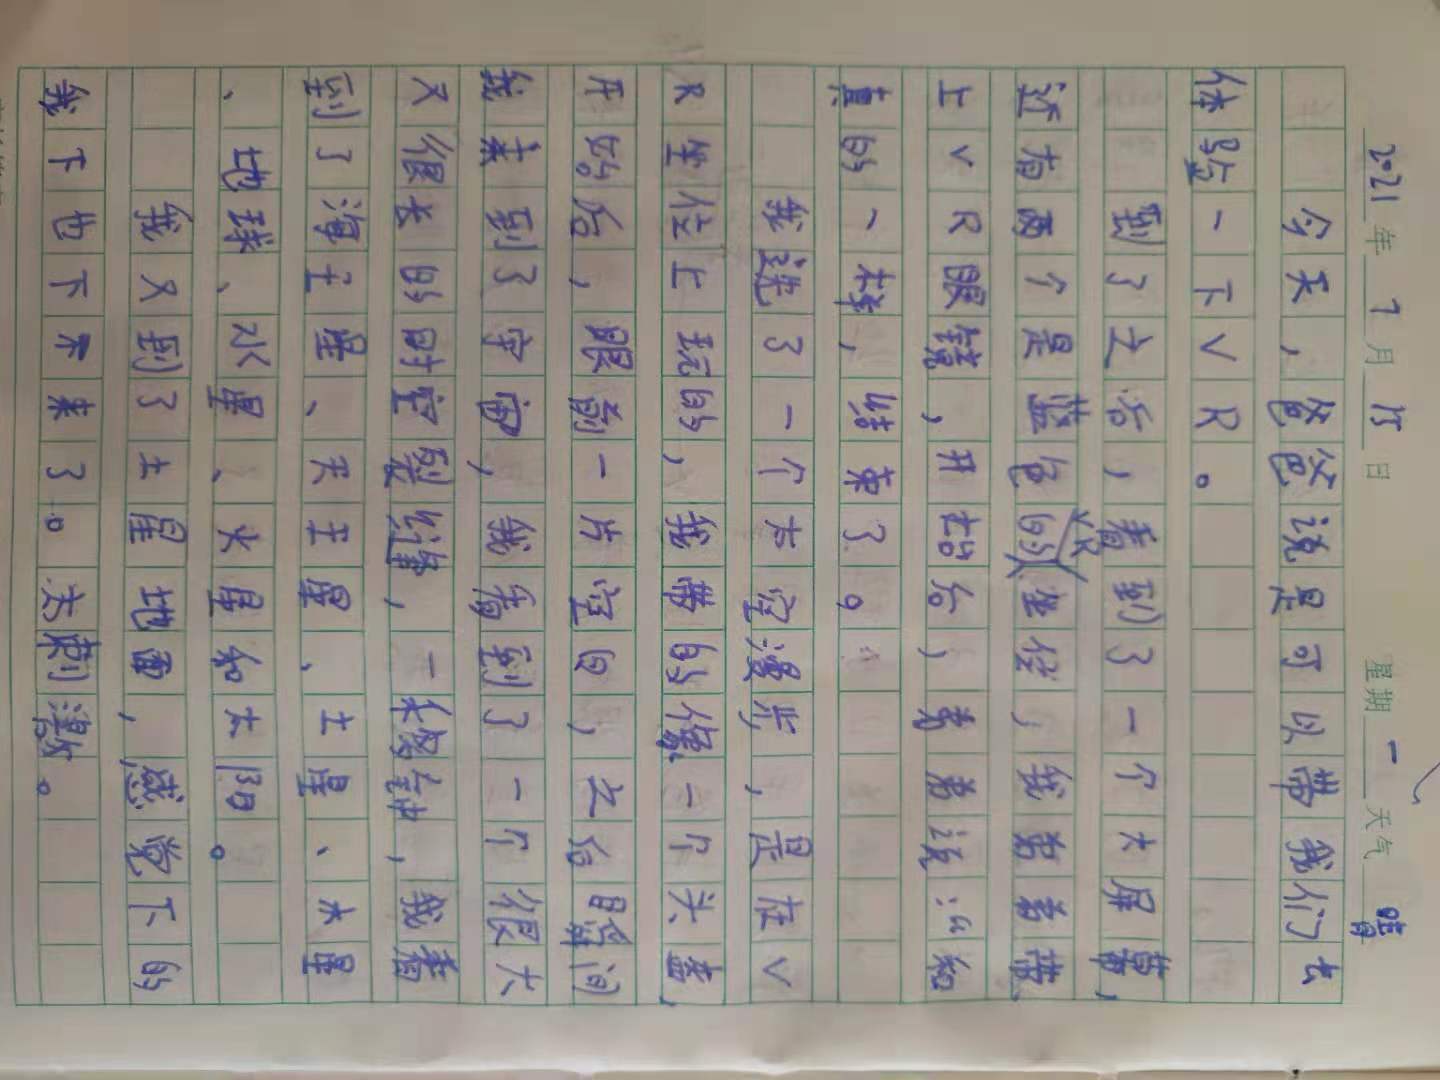 2021年7月15日 星期一 天气晴
今天,爸爸说是可以带我们去
体验一下VR。
到了之后,看到了一个大屏幕,
近有两个是蓝色的VR坐位,我舅舅带
上VR眼镜,开始后,舅舅说:“和
真的一样,结束了。
我选了一个太空漫步,是在V
R坐位上玩的,我带的像一个头盔,
开始后,眼前一片空白,之后瞬间
我来到了宇宙,我看到了一个很大
又很长的时空裂缝,一秒钟,我看
到了海王星、天王星、土星、木星
、地球、水星、火星和太阳。
我又到了土星地面,感觉下的
我下也下不来了。太刺激。